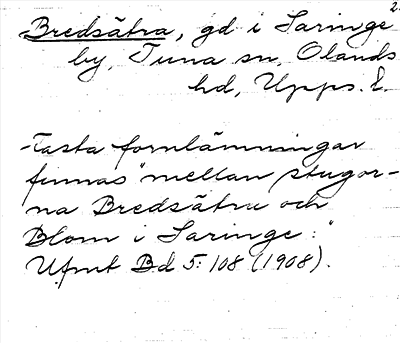 2.
Bredsätra, gd i Saringe
by, Tuna sn, Olands
hd, Upps. l.
"Fasta fornlämningar
finnas "mellan stugor-
na Bredsätra och
Blom i Saringe:"
Ufmt Bd 5: 108 (1908).